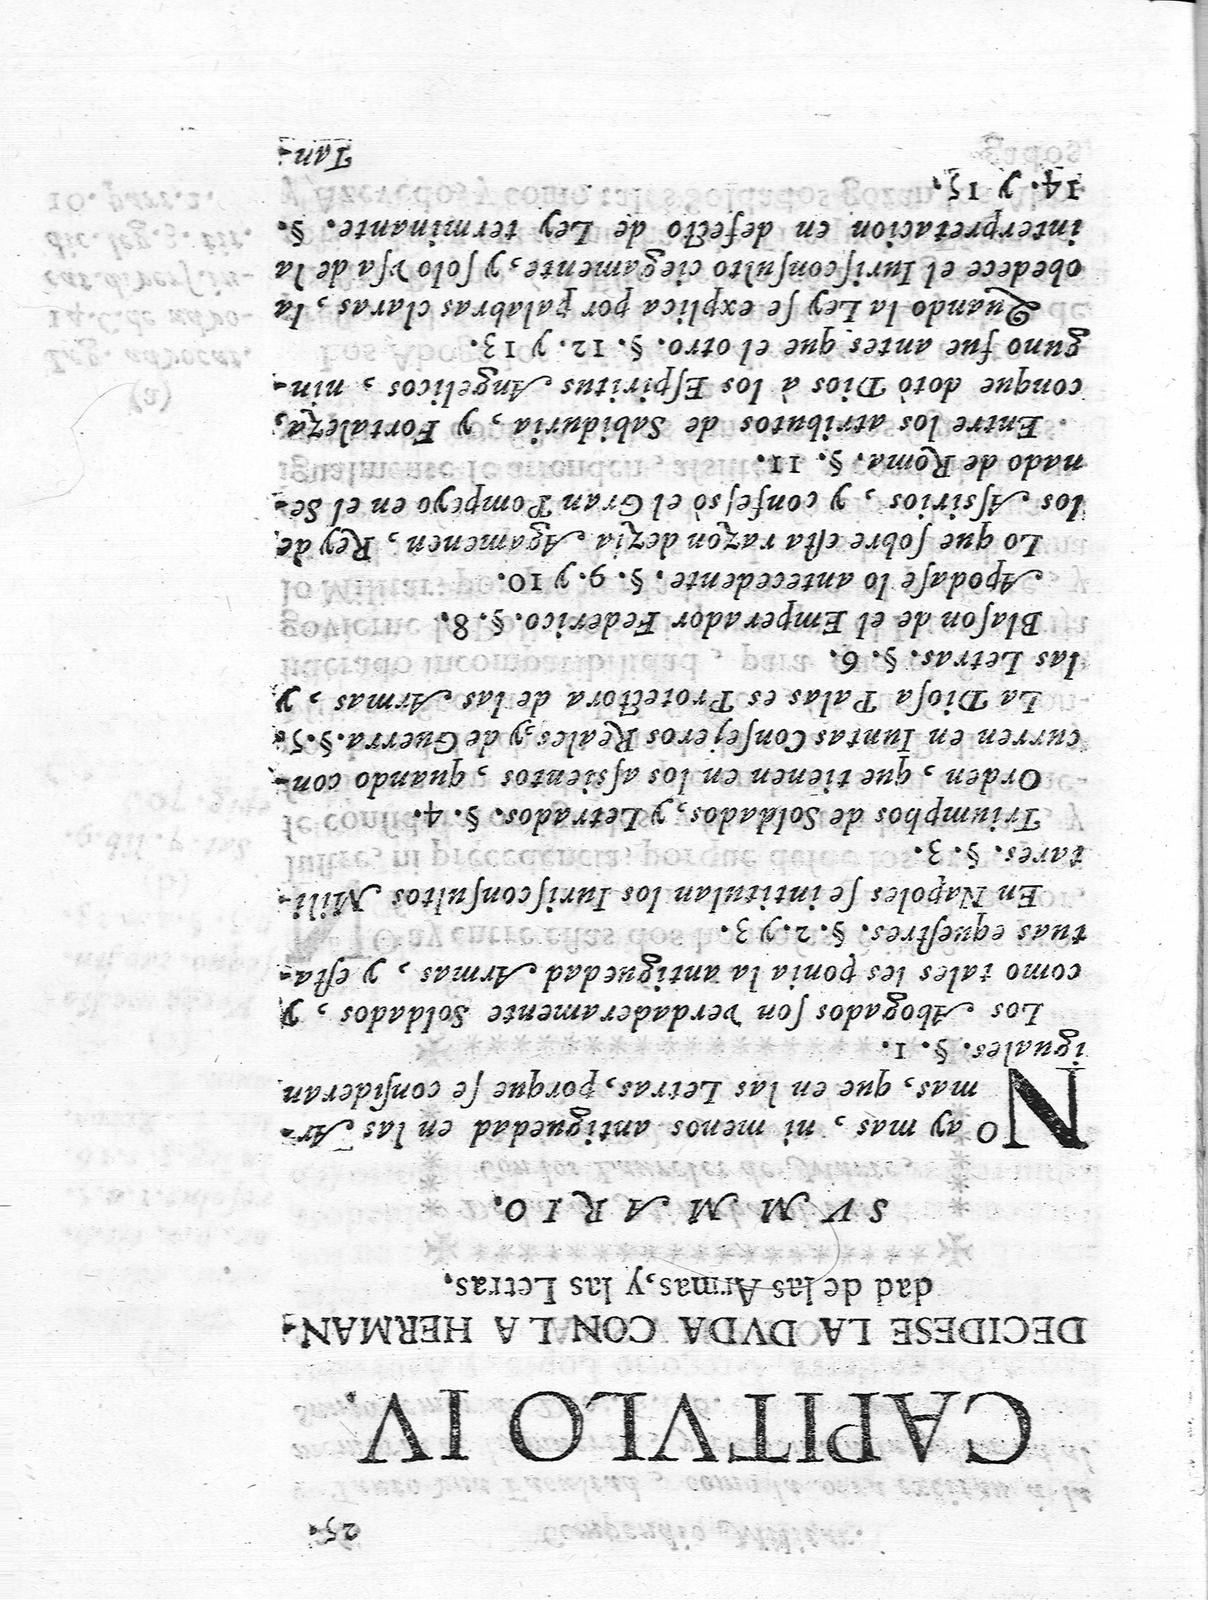 25.
CAPITVLO IV.
DECIDESE LA DVDA CON LA HERMAN-
dad de las Armas, y las Letras.
SVMMARIO.
No ay mas, ni menos antiguedad en las Ar-
mas, que en las Letras, porque se consideran
iguales. §. 1.
Los Abogados son verdaderamente Soldados, y
como tales les ponia la antiguedad Armas, y esta-
tuas equestres. §. 2. y 3.
En Napoles se intitulan los Iurisconsultos Mili-
tares. §. 3.
Triumphos de Soldados, y Letrados. §. 4.
Orden, que tienen en los assientos, quando con-
curren en Iuntas Consejeros Reales, y de Guerra. §. 5.
La Diosa Palas es Protectora de las Armas, y
las Letras. §. 6.
Blason de el Emperador Federico. §. 8.
Apodase lo antecedente. §. 9. y 10.
Lo que sobre esta razon dezia Agamenen, Rey de
los Assirios, y confessò el Gran Pompeyo en el Se-
nado de Roma. §. 11.
Entre los atributos de Sabiduria, y Fortaleza,
conque dotò Dios à los Espiritus Angelicos, nin-
guno fue antes que el otro. §. 12. y 13.
Quando la Ley se explica por palabras claras, la
obedece el Iurisconsulto ciegamente, y solo vsa de la
interpretacion en defecto de Ley terminante. §.
14. y 15.
Tan-